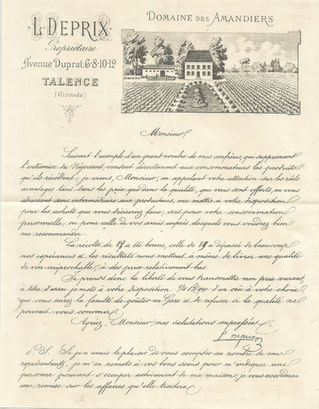 L. DEPRIX
Propriétaire
Avenue Duprat, 6·8·10·12
TALENCE
(Gironde)
DOMAINE DES AMANDIERS
Monsieur
Suivant l'exemple d'un grand nombre de mes confrères, qui supprimant
l'entremise du Négociant, vendent directement aux consommateurs les produits
qu'ils récoltent, je viens, Monsieur, en appelant votre attention sur les réels
avantages tant dans les prix que dans la qualité, qui vous sont offerts, en vous
adressant sans intermédiaire aux producteurs, me mettre à votre disposition
pour les achats que vous désirerez faire, soit pour votre consommation
personnelle, ou pour celle de vos amis auprès desquels vous voudrez bien
me recommander.
La récolte de 18 a été bonne, celle de 19 a dépassé de beaucoup
nos espérances et les résultats nous mettent à même de livrer une qualité
de vin irréprochable, à des prix relativement bas.
Je prends donc la liberté de vous transmettre mon prix courant
à titre d'essai je mets à votre disposition d'un crû à votre choix
que vous aurez la faculté de goûter en Gare et de refuser si la qualité ne
pouvait vous convenir.
Agréez, Monsieur, mes salutations empressées.
L. Deprix
P.S. Si j'avais le plaisir de vous compter au nombre de mes
représentants, je m'en remets à vos bons soins pour m'indiquer une
personne pouvant s'occuper activement de ma maison, je vous accorderai
une remise sur les affaires qu'elle traitera.